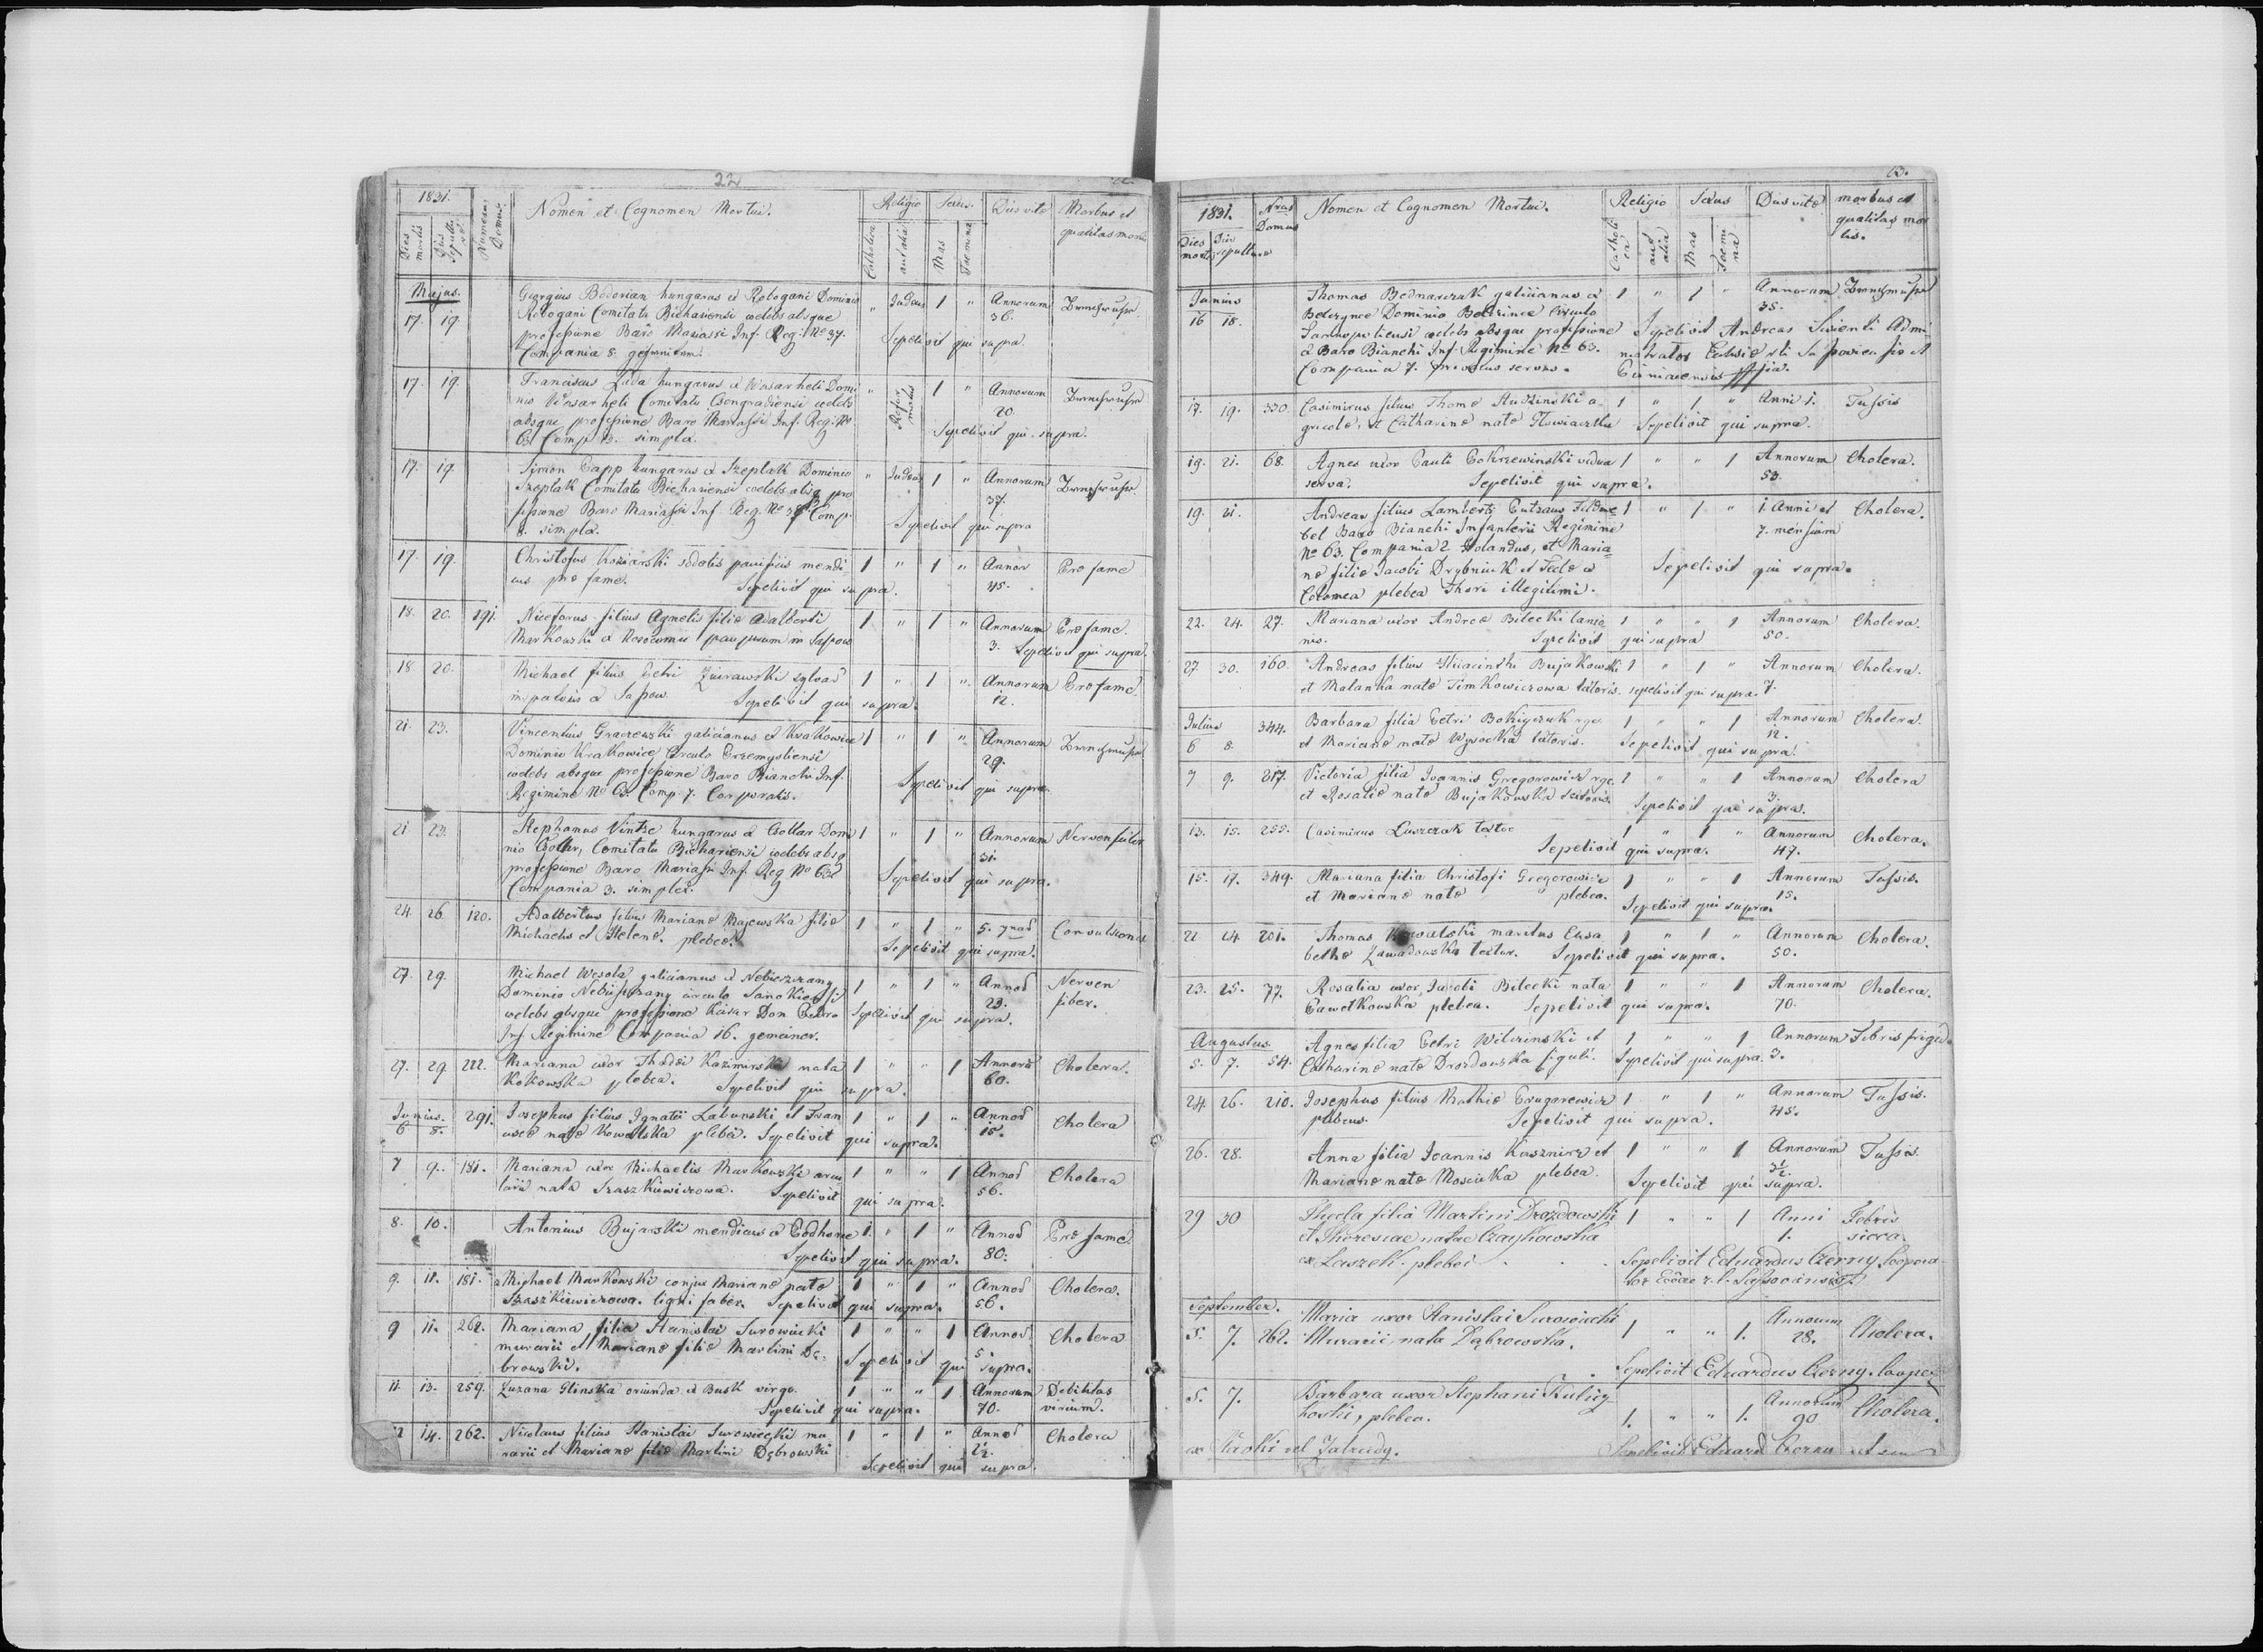 22
1831.
Dies mortis
Dies Sepultu
Numerus Domus
Nomen et Cognomen Mortui.
Religio
Catholica
aut alia
Sexus.
Mas
Foemina
Dies vitae
Morbus et
qualitas mortis
Majus.
17. 19. Georgius Bodorian hungarus a Robogani Dominio " Judeus 1 " Annorum
Robogani Comitatu Bichariensi coelebs absque 36.
professione Baro Mariassi Inf. Reg. No 37. Sepelivit qui supra.
Compania 8.
17. 19. Franciscus Zada hungarus a Wasarheli Domi " 1 " Annorum
nio Wasarheli Comitatu Csongradiensi coelebs 20.
absque professione Baro Mariassi Inf. Reg. No
Comp. simpla. Sepelivit qui supra.
17. 19. Simon Papp hungarus a Szeplak Dominio " 1 " Annorum
Szeplak Comitatu Bichariensi coelebs absq pro 37.
fessione Baro Mariassi Inf. Reg. No Comp.
8. simpla. Sepelivit qui supra
17. 19. Christofus Koziarski sodalis panificis mendi 1 " 1 " Annor Prae fame
cus prae fame. Sepelivit qui supra. 45.
18. 20. 191. Niceforus filius Agnetis filiae Adalberti 1 " 1 " Annorum Prae fame.
Markowski a pauperum in Sasow 3. Sepelivit qui supra.
18 20. Michael filius Petri Zuirawski sylvae 1 " 1 " Annorum Prae fame.
a Sasow. Sepelivit qui supra. 12.
21. 23. Vincentius Graczewski galicianus a Krakowice 1 " 1 " Annorum
Dominio Krakowice Circulo Przemysliensi 29.
coelebs absque professione Baro Bianchi Inf.
Regimine No 63. Comp. 7. Corporalis. Sepelivit qui supra.
21 23. Stephanus Vintze hungarus a Csollar Domi 1 " 1 " Annorum Nervenfieber
nio Comitatu Bichariensi coelebs absq 31.
professione Baro Mariassi Inf. Reg No
Compania 3. simplex. Sepelivit qui supra.
24. 26. 120. Adalbertus filius Marianae Majewska filiae 1 " 1 " 5. Convulsiones
Michaelis et Helenae. plebeae. Sepelivit qui supra.
27. 29. Michael Wesola galicianus a Nebieszczany 1 " 1 " Annor Nerven
Dominio Nebieszczany circulo Sanokiensi 23. fiber.
coelebs absque professione Kaiser Don Pedro Sepelivit qui supra.
Inf. Regimine Compania 16. gemeiner.
27. 29. 222. Mariana uxor Thadei Kazimirska nata 1 " " 1 Annor Cholera.
Kokowska plebea. Sepelivit qui supra. 60.
Junius.
6 8. 291. Josephus filius Ignatii Labunski et Fran 1 " 1 " Annor Cholera
ciscae natae Kowalska plebei. Sepelivit qui supra. 15.
7 9. 181. Mariana uxor Michaelis Markowski arcu 1 " " 1 Annor Cholera
larii nata Szaszkiewiczowa. Sepelivit qui supra. 56.
8. 10. Antonius Bujarski mendicus a Podhorce 1. " 1 " Annor Prae fame.
Sepelivit qui supra. 80.
9. 11. 181. Michael Markowski conjux Marianae natae 1 " 1 " Annor Cholera.
Szaszkiewiczowa. ligni faber. Sepelivit qui supra. 56.
9 11. 262. Mariana filia Stanislai Surowiecki 1 " " 1 Annor Cholera
murarii et Marianae filiae Martini Dę 5
browski. Sepelivit qui supra.
11. 13. 259. Zuzana Glinska oriunda a Busk virgo. 1 " " 1 Annorum Debilitas
Sepelivit qui supra. 70. virium.
12 14. 262. Nicolaus filius Stanislai Surowiecki mu 1 " 1 " Annor Cholera
rarii et Marianae filiae Martini Dębrowski 2½.
Sepelivit qui supra.
63.
1831.
Nrus Domus
Dies mortis
Dies sepulturae
Nomen et Cognomen Mortui.
Religio
Catholica
aut alia
Sexus
Mas
Foemina
Dies vitae
morbus et
qualitas mor
tis.
Junius
16 18. Thomas Bednarczuk galicianus a 1 " 1 " Annorum
Dominio Circulo 35.
Tarnopoliensi coelebs absque professione Sepelivit Andreas Admi
a Baro Bianchi Inf. Regimine No 63. nistrator
Compania 7. privatus servus.
17. 19. 330. Casimirus filius Thomae Rudzinski a 1 " 1 " Anni 1. Tussis
gricolae, et Catharinae natae Sepelivit qui supra.
19. 21. 68. Agnes uxor Pauli Pokrzewinski vidua 1 " " 1 Annorum Cholera.
serva. Sepelivit qui supra. 53.
19. 21. Andreas filius Lamberti Feldwe 1 " 1 " 1. Anni et Cholera.
bel Baro Bianchi Infanterii Regimine 7. mensium
No 63. Compania 2 et Maria
nae filiae Jacobi Drybniuk et Teclae a Sepelivit qui supra.
Colomea plebea Thori illegitimi.
22. 24. 27. Mariana uxor Andreae Bilecki lania 1 " " 1 Annorum Cholera.
nis. Sepelivit qui supra 50.
27 30. 160. Andreas filius Hiiacinthi Bujakowski 1 " 1 " Annorum Cholera.
et Malanka natae Timkowiczowa sepelivit qui supra. 7.
Julius
6 8. 344. Barbara filia Petri rgc. 1 " " 1 Annorum Cholera.
et Marianae natae Wysocka Sepelivit qui supra. 12.
7 9. 217. Victoria filia Joannis Gregorowicz rgc. 1 " " 1 Annorum Cholera
et Rosaliae natae Bujakowska Sepelivit qui supra. 3.
13. 15. 255. Casimirus Luszczak textor 1 " 1 " Annorum Cholera.
Sepelivit qui supra. 47.
15. 17. 349. Mariana filia Christofi Gregorowicz 1 " " 1 Annorum Tussis.
et Marianae natae plebea. Sepelivit qui supra. 15.
22 24. 201. Thomas Kowalski maritus Elisa 1 " 1 " Annorum Cholera.
bethae Zawadowska textor. Sepelivit qui supra. 50.
23. 25. 77. Rosalia uxor Jacobi Bilecki nata 1 " " 1 Annorum Cholera.
Pawelkowska plebea. Sepelivit qui supra. 70.
Augustus.
5. 7. 54. Agnes filia Petri Wilczinski et 1 " " 1 Annorum Febris frigida
Catharinae natae Drozdowska figuli. Sepelivit qui supra. 3.
24 26. 210. Josephus filius Mathiae Grugorewicz 1 " 1 " Annorum Tussis.
plebeus. Sepelivit qui supra. 45.
26. 28. Anna filia Joannis Kusznirz et 1 " " 1 Annorum Tussis.
Marianae natae Moscicka plebea. Sepelivit qui supra.
29 30 Thecla filia Martini Drozdowski 1 " " 1 Anni Febris
et Theresiae natae Czaykowska 1. sicca.
ex Laszek. plebei Sepelivit Eduardus Czerny Coopera-
tor
September.
5. 7. 262. Maria uxor Stanislai Surowiecki 1 " " 1. Annorum Cholera.
Murarii, nata Dąbrowska. 28.
Sepelivit Eduardus Czerny. Cooper
5. 7. Barbara uxor Stephani
plebea. 1. " " 1. Annorum 90 Cholera.
Sepelivit Eduard Czerny